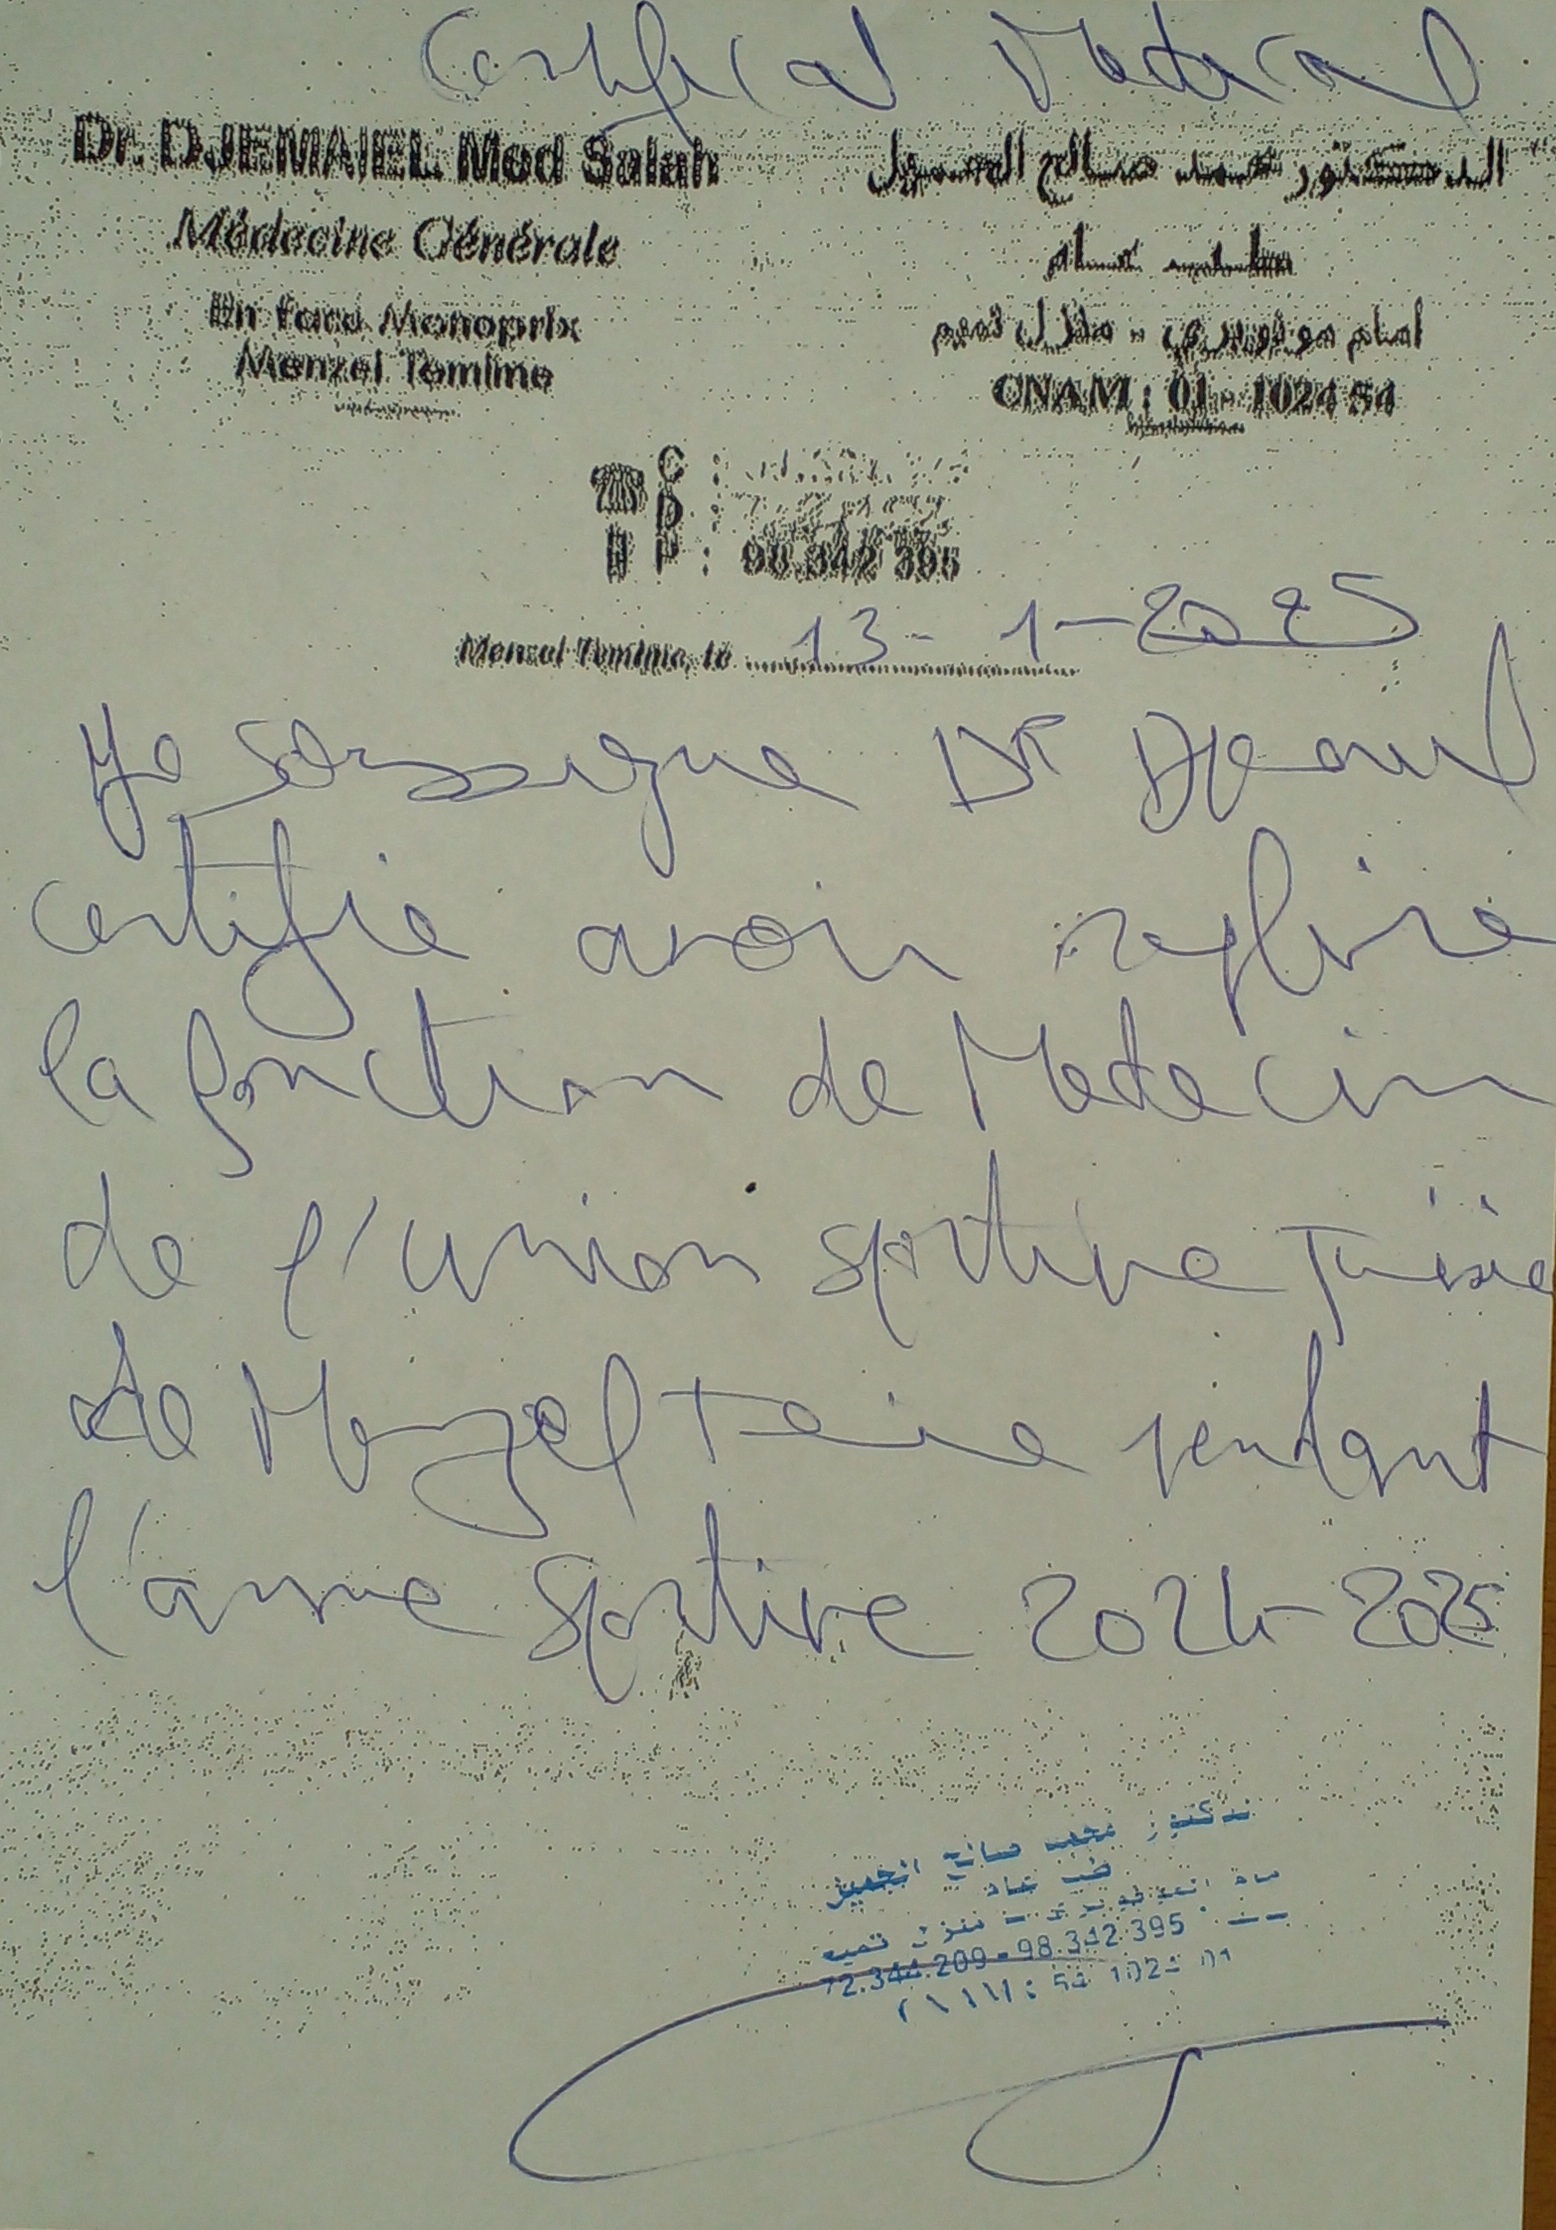 Certifical Medical
Dr. DJEMAIEL Med Salah
Médecine Générale
En face Monoprix
Menzel Temime
الدكتور محمد صالح الجميل
طبيب عام
امام مونوبري - منزل تميم
CNAM : 01 - 1024 54
P : 98 342 395
Menzel Temime, le 13 - 1 - 2025
Je soussigne Dr
certifie avoir
la fonction de Medecin
de l'union sportive
de Menzel pendant
l'annee sportive 2024-2025
محمد صالح الجميل
72.344.209 - 98.342.395